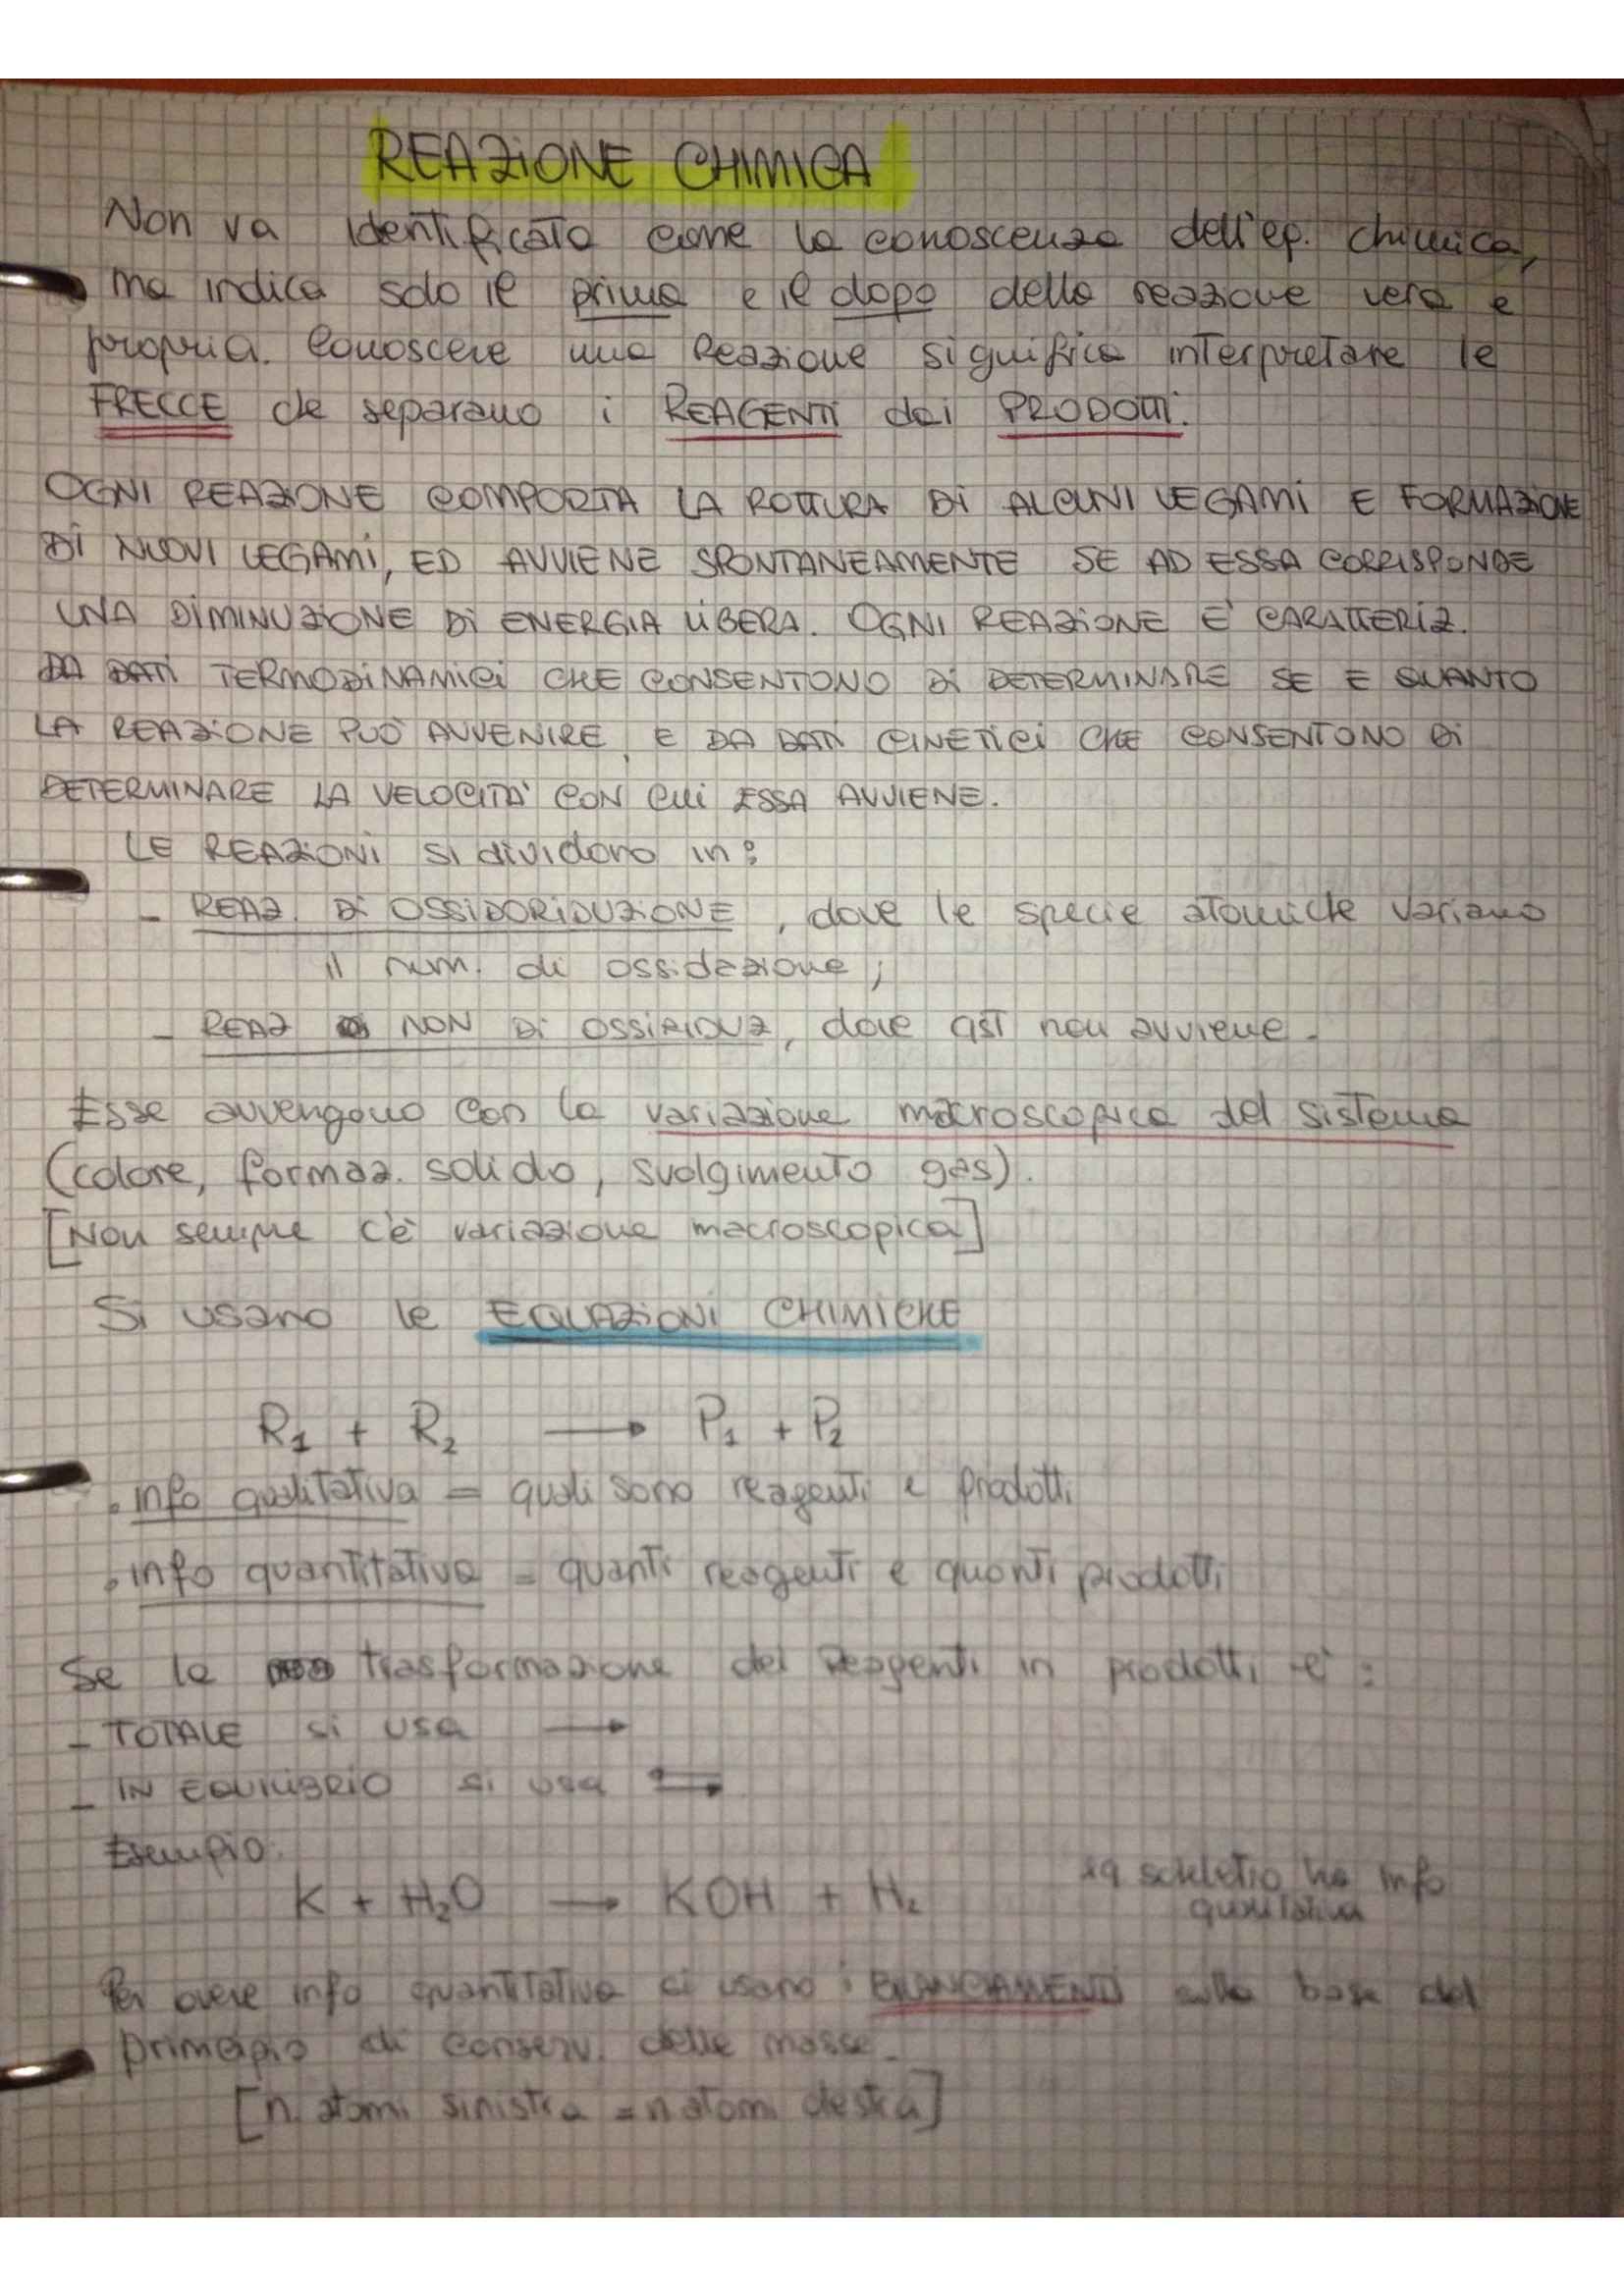 REAZIONE CHIMICA
Non va identificata come la conoscenza dell'eq. chimica,
ma indica solo il prima e il dopo della reazione vera e
propria. Conoscere una Reazione significa interpretare le
FRECCE che separano i REAGENTI dai PRODOTTI.
OGNI REAZIONE COMPORTA LA ROTTURA DI ALCUNI LEGAMI E FORMAZIONE
DI NUOVI LEGAMI, ED AVVIENE SPONTANEAMENTE SE AD ESSA CORRISPONDE
UNA DIMINUZIONE DI ENERGIA LIBERA. OGNI REAZIONE E' CARATTERIZ.
DA DATI TERMODINAMICI CHE CONSENTONO DI DETERMINARE SE E QUANTO
LA REAZIONE PUÒ AVVENIRE, E DA DATI CINETICI CHE CONSENTONO DI
DETERMINARE LA VELOCITA' CON CUI ESSA AVVIENE.
LE REAZIONI si dividono in:
- REAZ. DI OSSIDORIDUZIONE, dove le specie atomiche variano
il num. di ossidazione;
- REAZ NON DI OSSIRIDUZ, dove qst non avviene.
Esse avvengono con la variazione macroscopica del sistema
(colore, formaz. solido, svolgimento gas).
[Non sempre c'è variazione macroscopica]
Si usano le EQUAZIONI CHIMICHE
R1 + R2 → P1 + P2
• info qualitativa = quali sono reagenti e prodotti
• info quantitativa = quanti reagenti e quanti prodotti
Se la trasformazione dei Reagenti in prodotti è:
- TOTALE si usa →
- IN EQUILIBRIO si usa ⇆
Esempio:
K + H2O → KOH + H2
eq scheletro ha info
qualitativa
Per avere info quantitative si usano i BILANCIAMENTI sulla base del
principio di conserv. delle masse.
[n. atomi sinistra = n atomi destra]